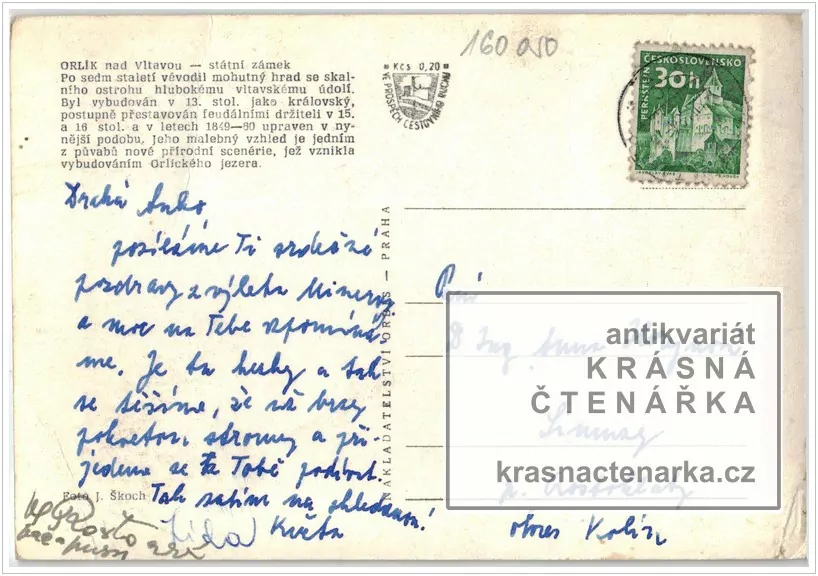 160 050
ORLÍK nad Vltavou — státní zámek
Po sedm staletí vévodil mohutný hrad se skal-
ního ostrohu hlubokému vltavskému údolí.
Byl vybudován v 13. stol. jako královský,
postupně přestavován feudálními držiteli v 15.
a 16 stol. a v letech 1849—60 upraven v ny-
nější podobu. Jeho malebný vzhled je jedním
z půvabů nové přírodní scenérie, jež vznikla
vybudováním Orlického jezera.
Kčs 0,20
VE PROSPĚCH CESTOVNÍHO RUCHU
ČESKOSLOVENSKO
30h
PERNŠTEJN
Drahá Anko
posíláme Ti srdečné
pozdravy z výletu Minervy
a moc na Tebe vzpomíná-
me. Je tu hezky a tak
se těšíme, že už brzy
pokvetou stromy a při-
jedeme se k Tobě podívat.
Tak zatím na shledanou!
Lída Květa
Foto J. Škoch
NAKLADATELSTVÍ ORBIS — PRAHA
Paní
Ing. Anna
okres Kolín
antikvariát
KRÁSNÁ
ČTENÁŘKA
krasnactenarka.cz